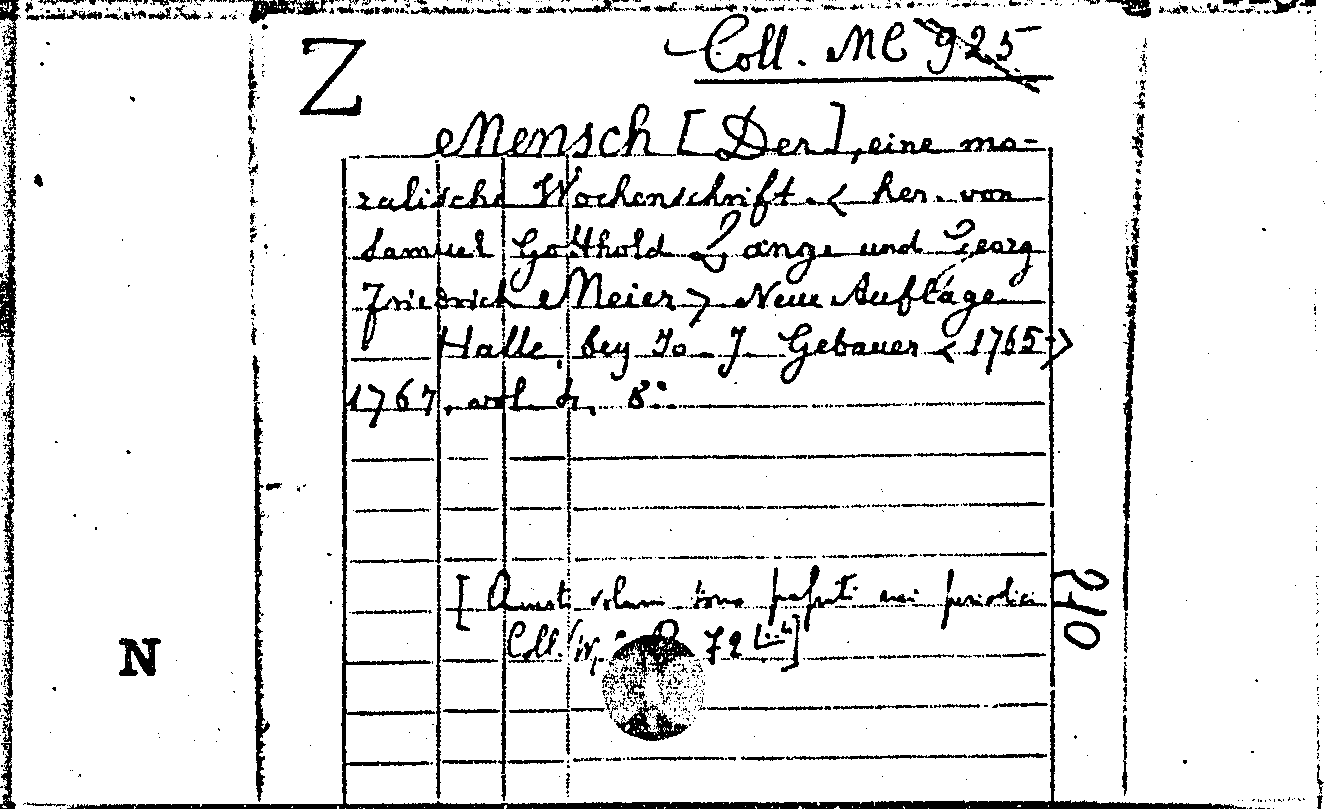 Z
Coll. MC 925
Mensch [Der], eine mo-
ralische Wochenschrift. < her. von
Samuel Gotthold Lange und Georg
Friedrich Meier > Neue Auflage
Halle, bey Jo. J. Gebauer < 1765 >
1767, vol. 4, 8°.
[Questi volumi sono nei periodici
Coll. 72
210
N